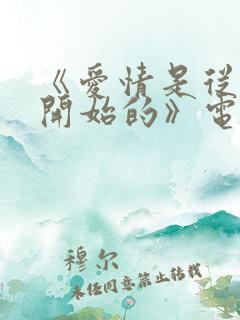 《愛情是從
開始的》電
穆尔
未经同意禁止转载